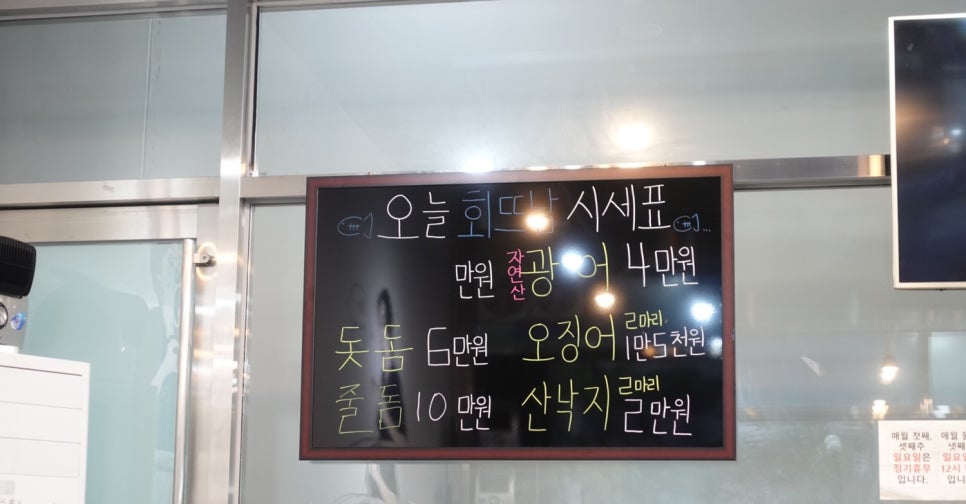 오늘 회뜨남 시세표
만원 자연산 광어 4만원
돗돔 6만원 오징어 2마리 1만5천원
줄돔 10만원 산낙지 2마리 2만원
매월 첫째,
셋째주
일요일은
정기휴무
입니다.
매월
넷째
일요일
12시
입니